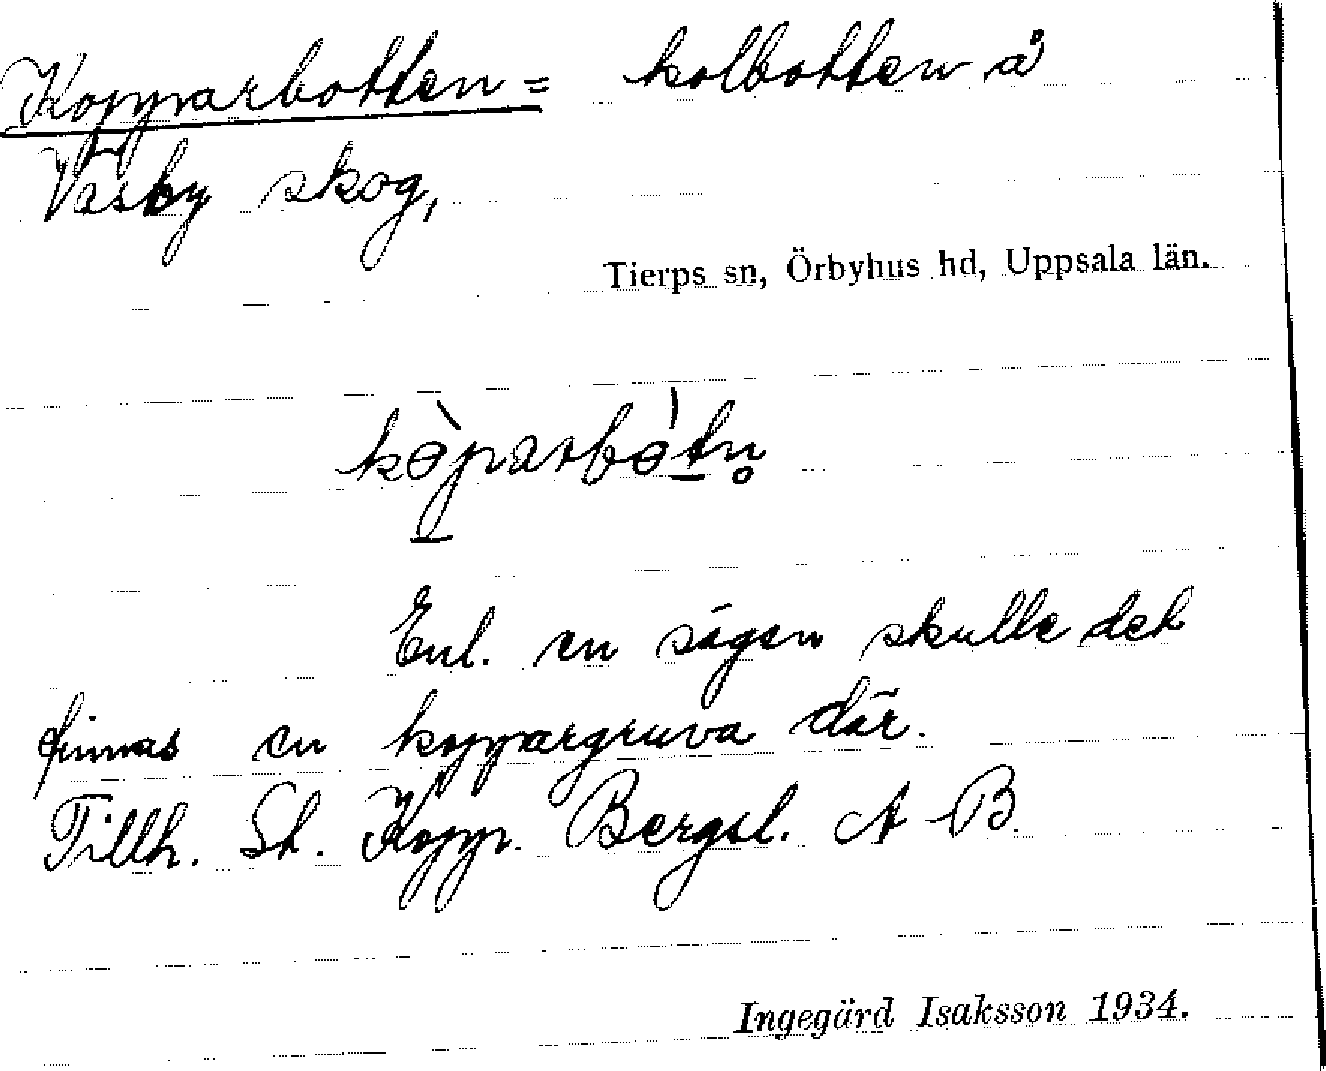 Kopparbotten = kolbotten å
Väsby skog,
Tierps sn, Örbyhus hd, Uppsala län.
kòparbótn̥
Enl. en sägen skulle det
finnas en koppargruva där.
Tillh. St. Kopp. Bergsl. A B.
Ingegärd Isaksson 1934.